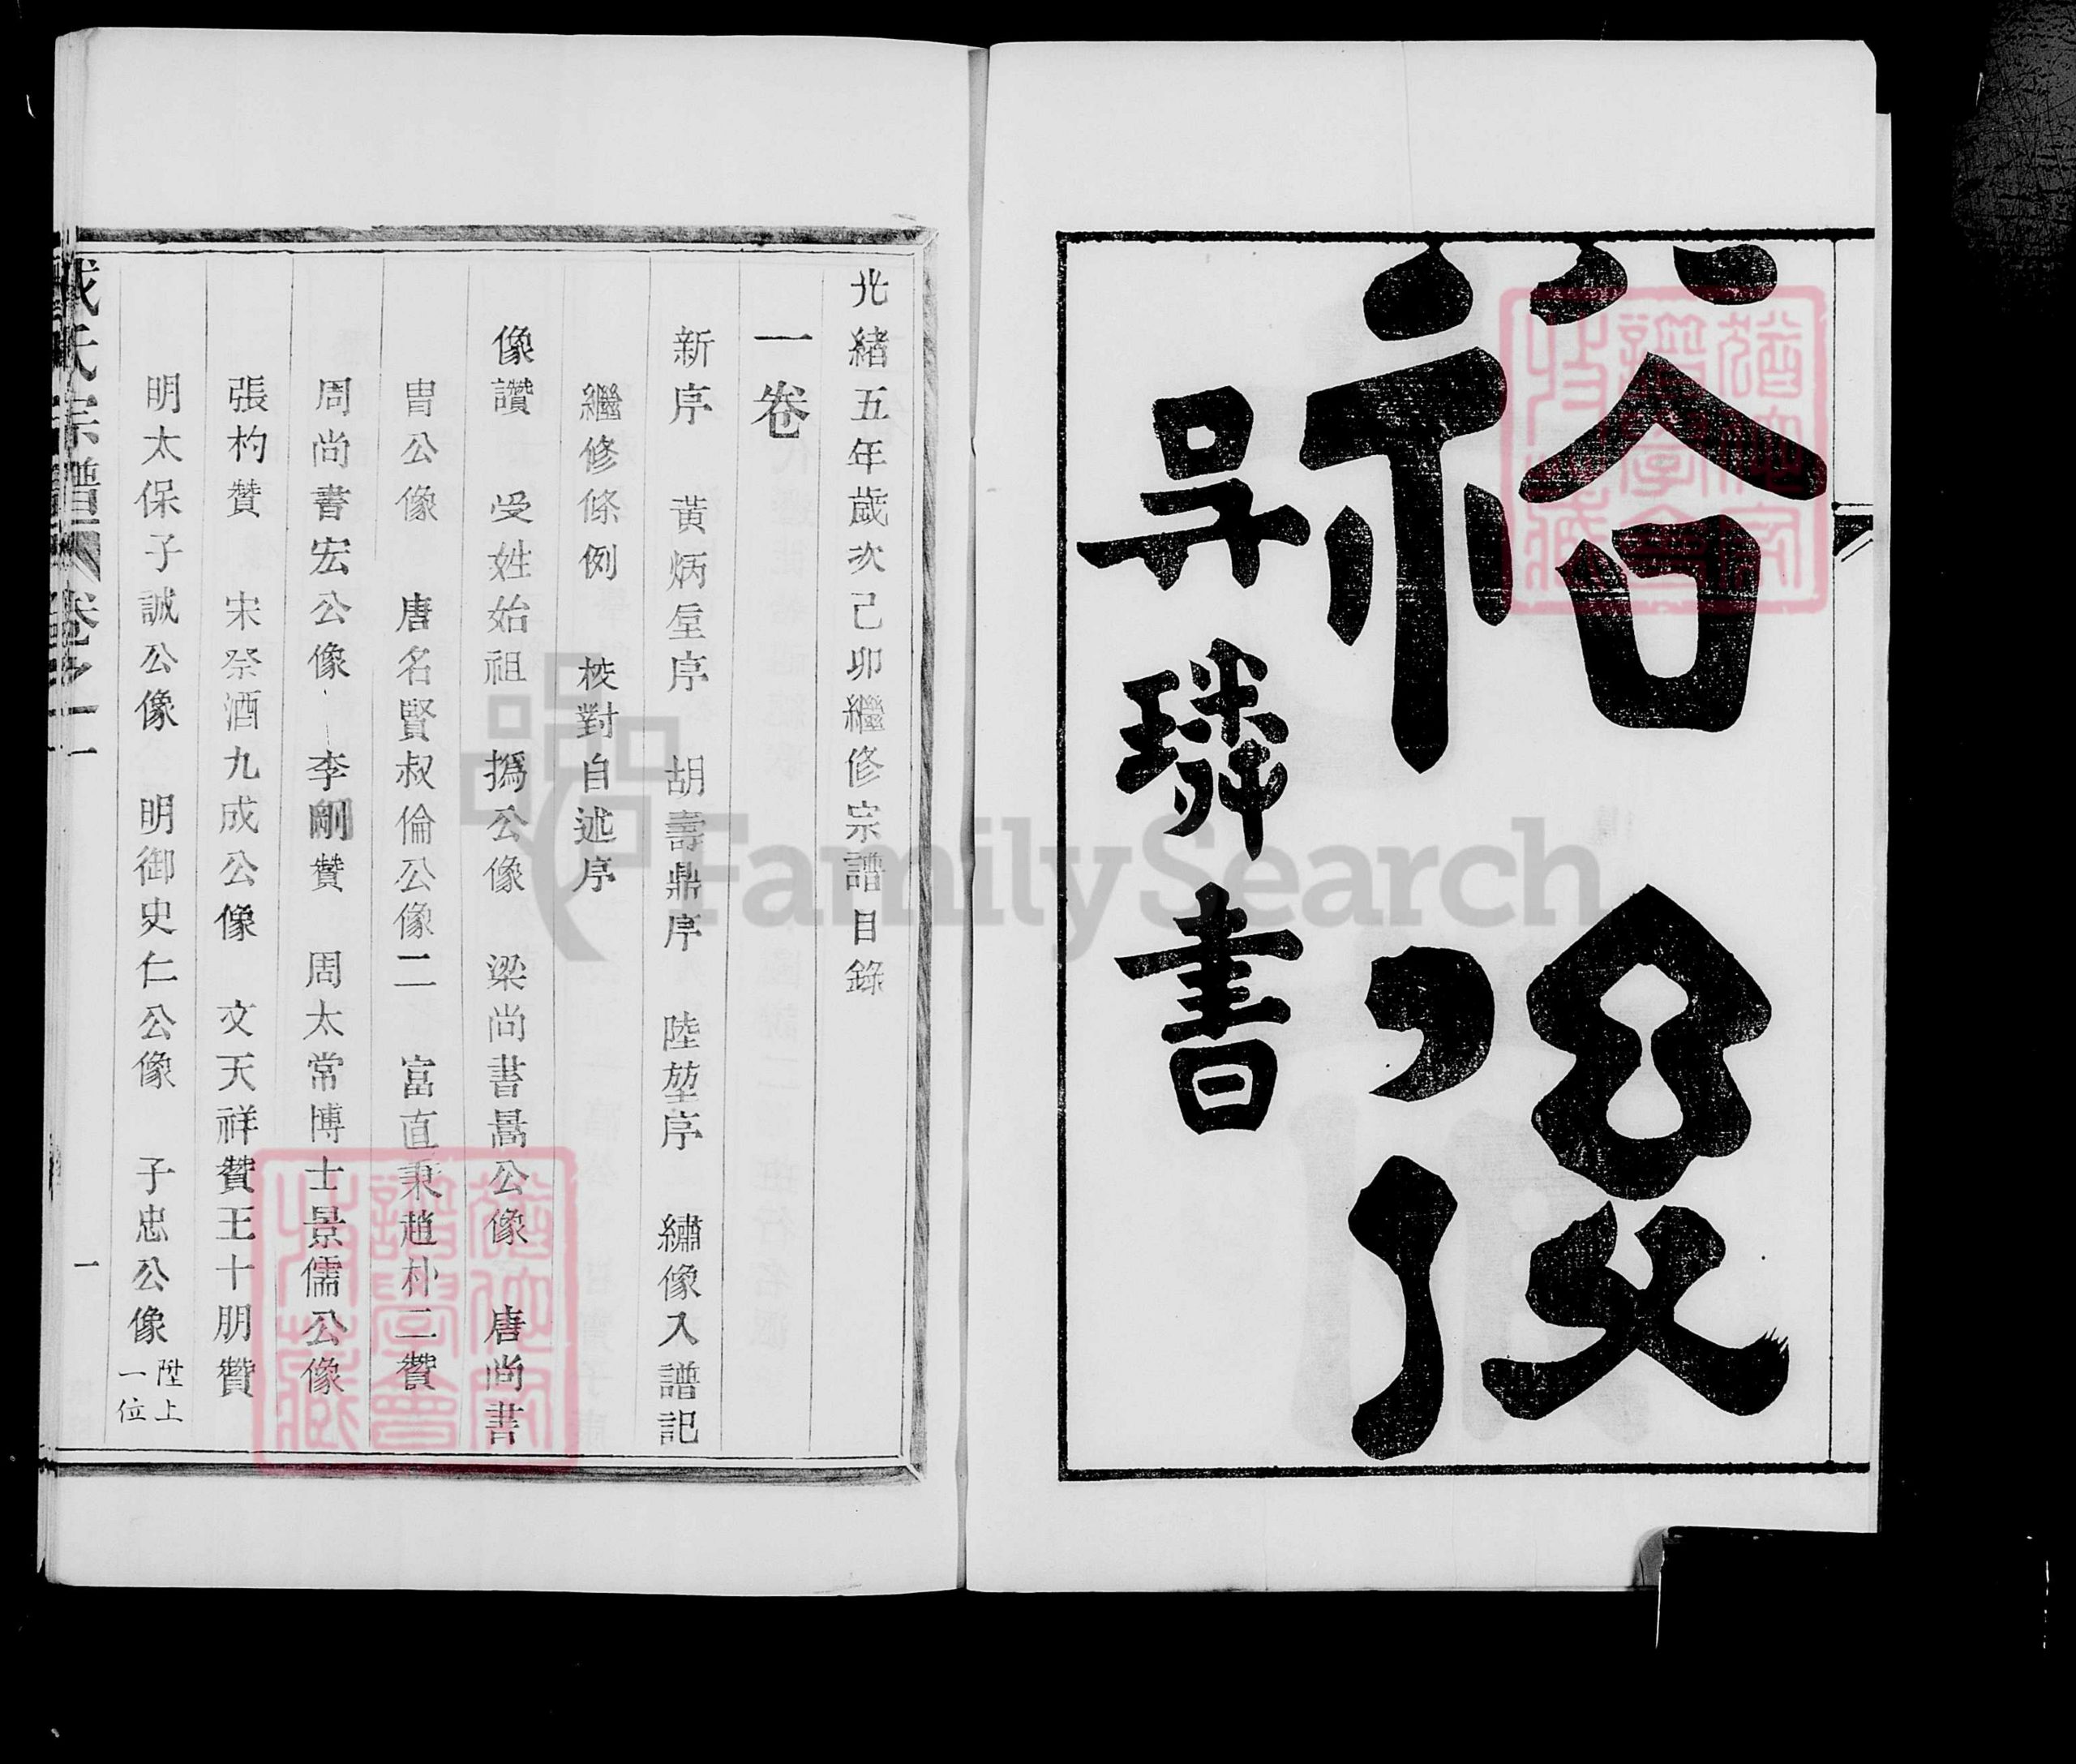 裕後
吳璘書
光緒五年歲次己卯繼修宗譜目錄
一卷
新序 黃炳垕序 胡壽鼎序 陸堃序 繡像入譜記
繼修條例 校對自述序
像讚 受姓始祖 撝公像 梁尚書暠公像 唐尚書
胄公像 唐名賢叔倫公像二 富直秉趙朴二贊
周尚書宏公像 李剛贊 周太常博士景儒公像
張杓贊 宋祭酒九成公像 文天祥贊王十朋贊
明太保子誠公像 明御史仁公像 子忠公像 陞上一位
氏宗譜 卷之一
一
FamilySearch